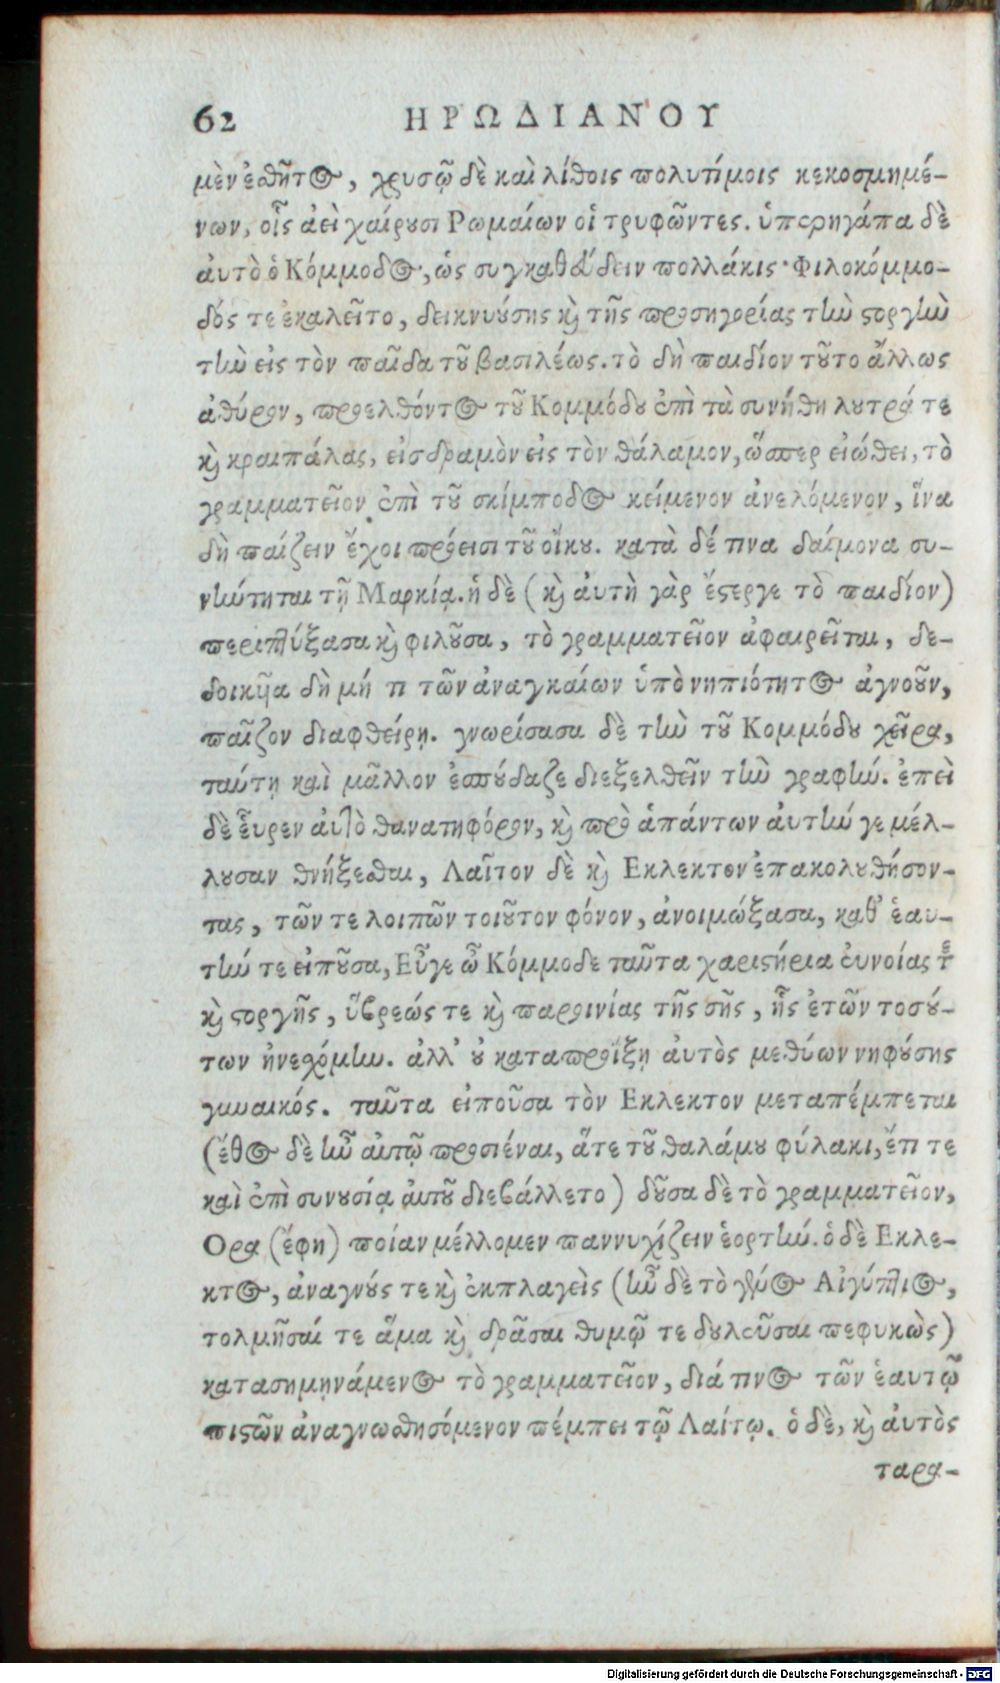 62 ΗΡΩΔΙΑΝΟΥ
μὲν ἐσθῆτος, χρυσῷ δὲ καὶ λίθοις πολυτίμοις κεκοσμημέ-
νων, οἷς ἀεὶ χαίρουσι Ρωμαίων οἱ τρυφῶντες. ὑπερηγάπα δὲ
αὐτὸ ὁ Κόμμοδος, ὡς συγκαθεύδειν πολλάκις· Φιλοκόμμο-
δός τε ἐκαλεῖτο, δεικνυούσης καὶ τῆς προσηγορίας τὴν στοργὴν
τὴν εἰς τὸν παῖδα τοῦ βασιλέως. τὸ δὴ παιδίον τοῦτο ἄλλως
ἀθύρον, προελθόντος τοῦ Κομμόδου ἐπὶ τὰ συνήθη λουτρά τε
καὶ κραιπάλας, εἰσδραμὸν εἰς τὸν θάλαμον, ὥσπερ εἰώθει, τὸ
γραμματεῖον ἐπὶ τοῦ σκίμποδος κείμενον ἀνελόμενον, ἵνα
δὴ παίζειν ἔχοι πρόεισι τοῦ οἴκου. κατὰ δέ τινα δαίμονα συ-
νήντηται τῇ Μαρκίᾳ. ἡ δὲ (καὶ αὐτὴ γὰρ ἔστεργε τὸ παιδίον)
περιπτύξασα καὶ φιλοῦσα, τὸ γραμματεῖον ἀφαιρεῖται, δε-
δοικυῖα δὴ μή τι τῶν ἀναγκαίων ὑπὸ νηπιότητος ἀγνοοῦν,
παῖζον διαφθείρῃ. γνωρίσασα δὲ τὴν τοῦ Κομμόδου χεῖρα,
ταύτῃ καὶ μᾶλλον ἐσπούδαζε διεξελθεῖν τὴν γραφήν. ἐπεὶ
δὲ εὗρεν αὐτὸ θανατηφόρον, καὶ πρὸ ἁπάντων αὐτήν γε μέλ-
λουσαν θνήξεσθαι, Λαῖτον δὲ καὶ Εκλεκτον ἐπακολουθήσον-
τας, τῶν τε λοιπῶν τοιοῦτον φόνον, ἀνοιμώξασα, καθ' ἑαυ-
τήν τε εἰποῦσα, Εὖγε ὦ Κόμμοδε ταῦτα χαριστήρια εὐνοίας τε
καὶ στοργῆς, ὕβρεώς τε καὶ παροινίας τῆς σῆς, ἧς ἐτῶν τοσού-
των ἠνεσχόμην. ἀλλ' οὐ καταπροΐξῃ αὐτὸς μεθύων νηφούσης
γυναικός. ταῦτα εἰποῦσα τὸν Εκλεκτον μεταπέμπεται
(ἔθος δὲ ἦν αὐτῷ προσιέναι, ἅτε τοῦ θαλάμου φύλακι, ἔτι τε
καὶ ἐπὶ συνουσίᾳ αὐτοῦ διεβάλλετο) δοῦσα δὲ τὸ γραμματεῖον,
Ορα (ἔφη) ποίαν μέλλομεν παννυχίζειν ἑορτήν. ὁ δὲ Εκλε-
κτος, ἀναγνούς τε καὶ ἐκπλαγεὶς (ἦν δὲ τὸ γένος Αἰγύπτιος,
τολμῆσαί τε ἅμα καὶ δρᾶσαι θυμῷ τε δουλεῦσαι πεφυκὼς)
κατασημηνάμενος τὸ γραμματεῖον, διά τινος τῶν ἑαυτῷ
πιστῶν ἀναγνωσθησόμενον πέμπει τῷ Λαίτῳ. ὁ δὲ, καὶ αὐτὸς
ταρα-
Digitalisierung gefördert durch die Deutsche Forschungsgemeinschaft - DFG